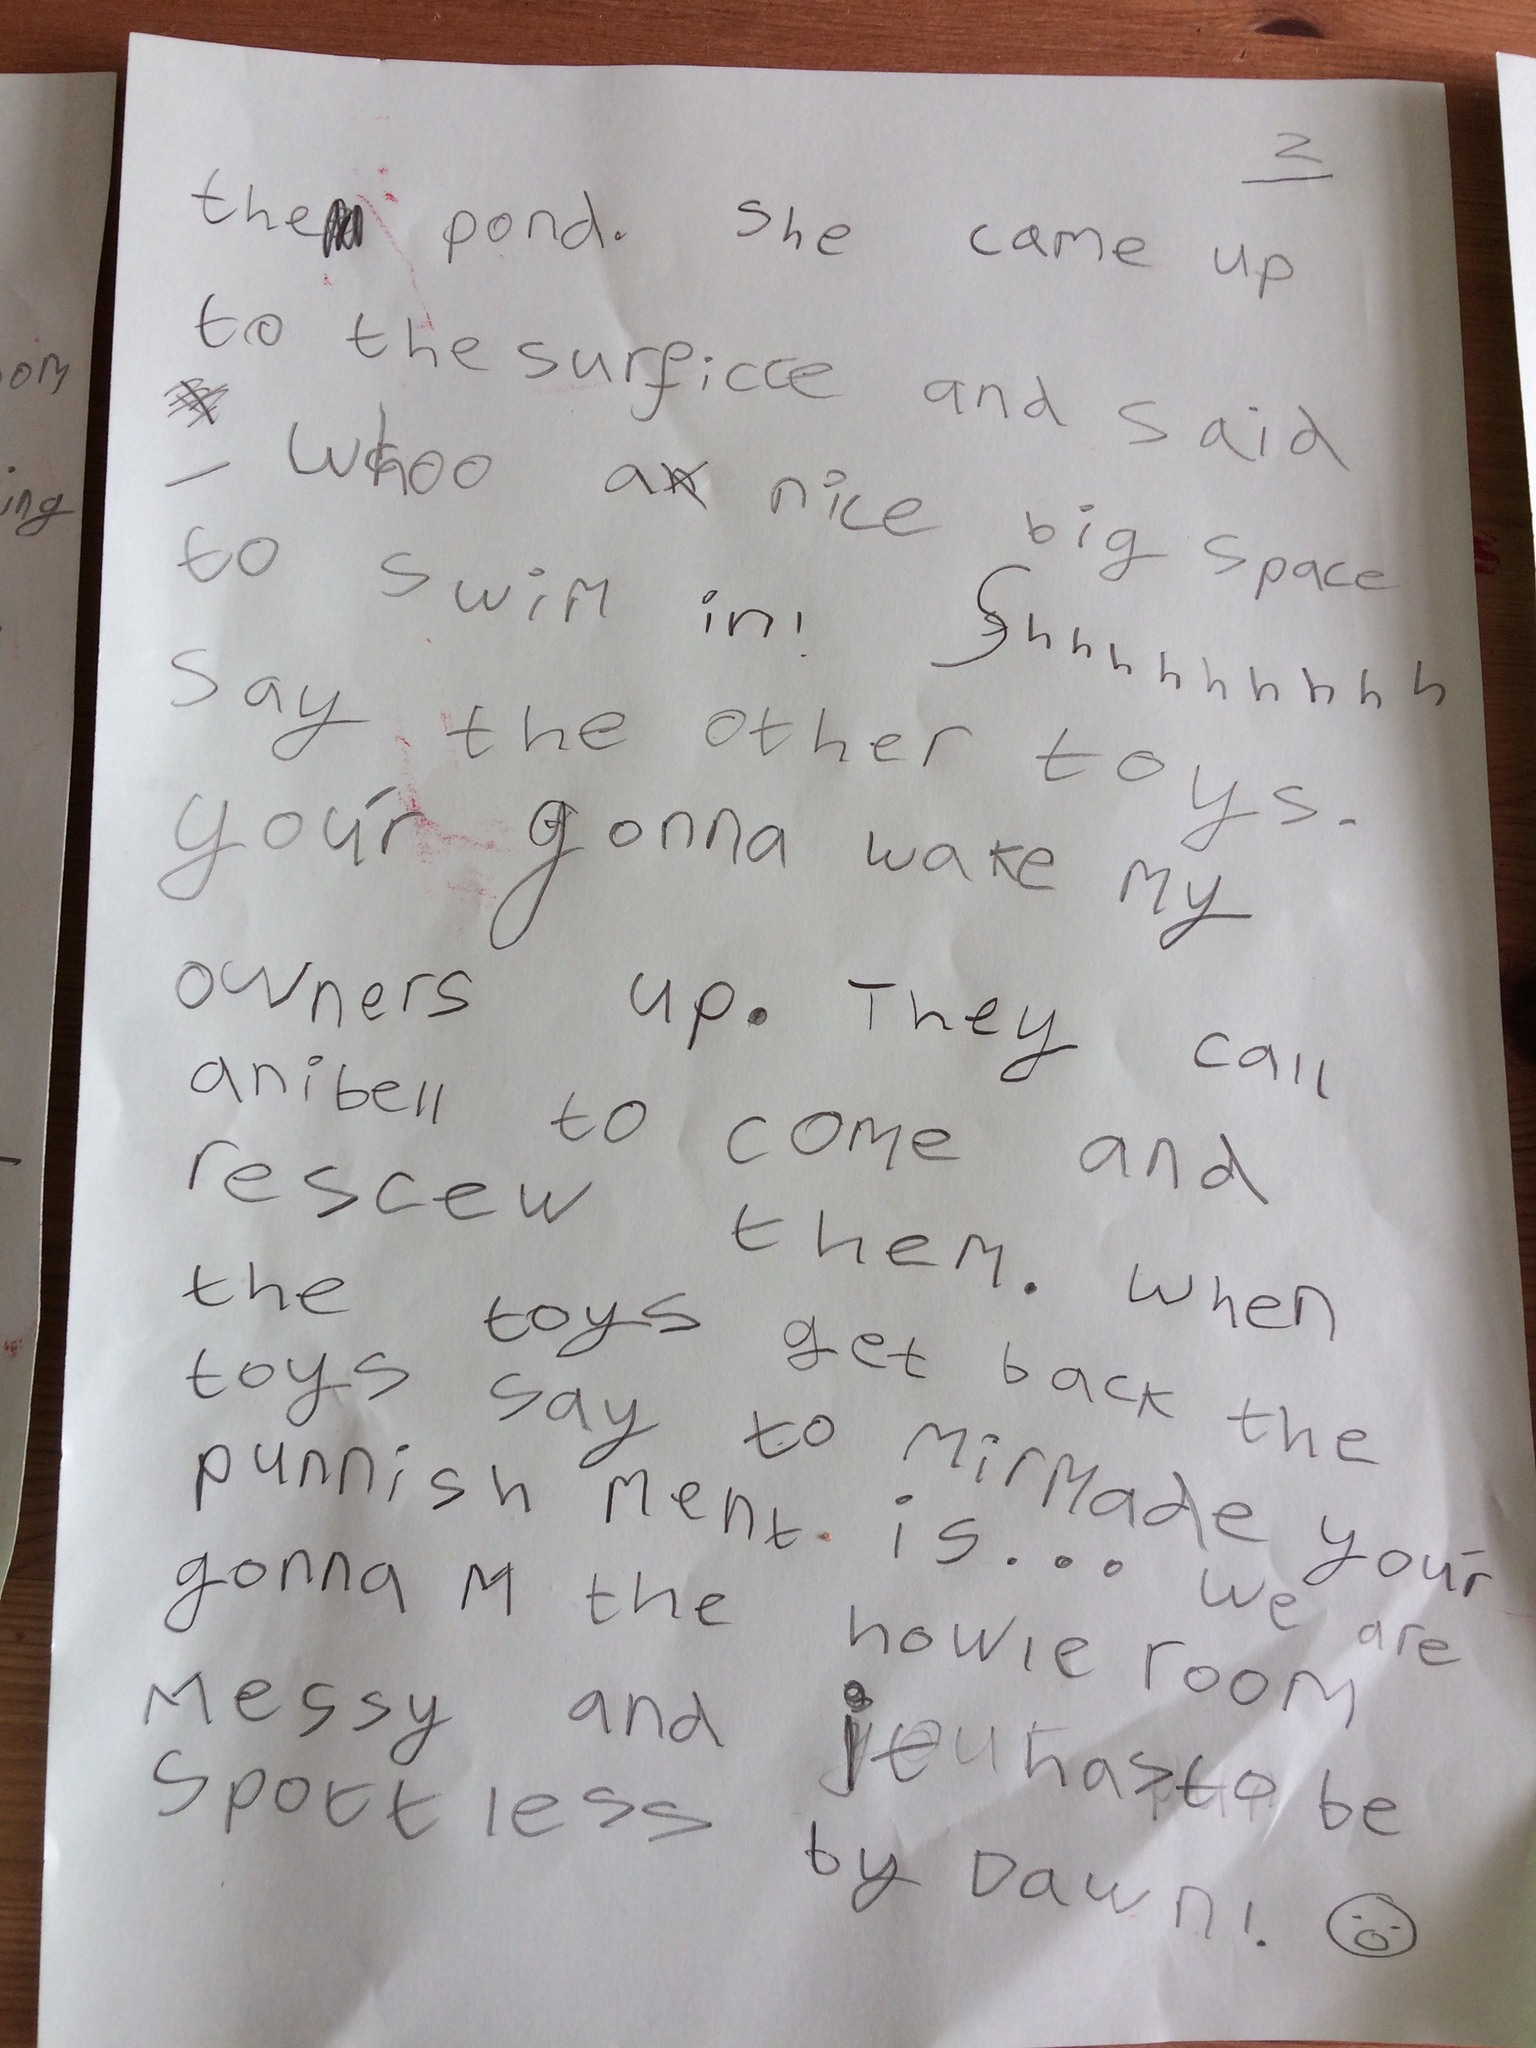 2
the pond. She came up
to the surficce and said
- Whoo a nice big space
to swim in! Shhhhhhhhh
say the other toys.
your gonna wake my
owners up. They call
anibell to come and
rescew them. When
the toys get back the
toys say to Mirmade your
punnish ment. is... we are
gonna M the howle room
Messy and it has to be
spottless by Dawn!
om
ing